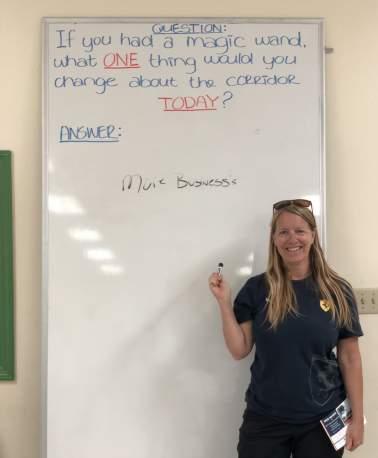 QUESTION:
If you had a magic wand,
what ONE thing would you
change about the corridor
TODAY?
ANSWER:
Business's